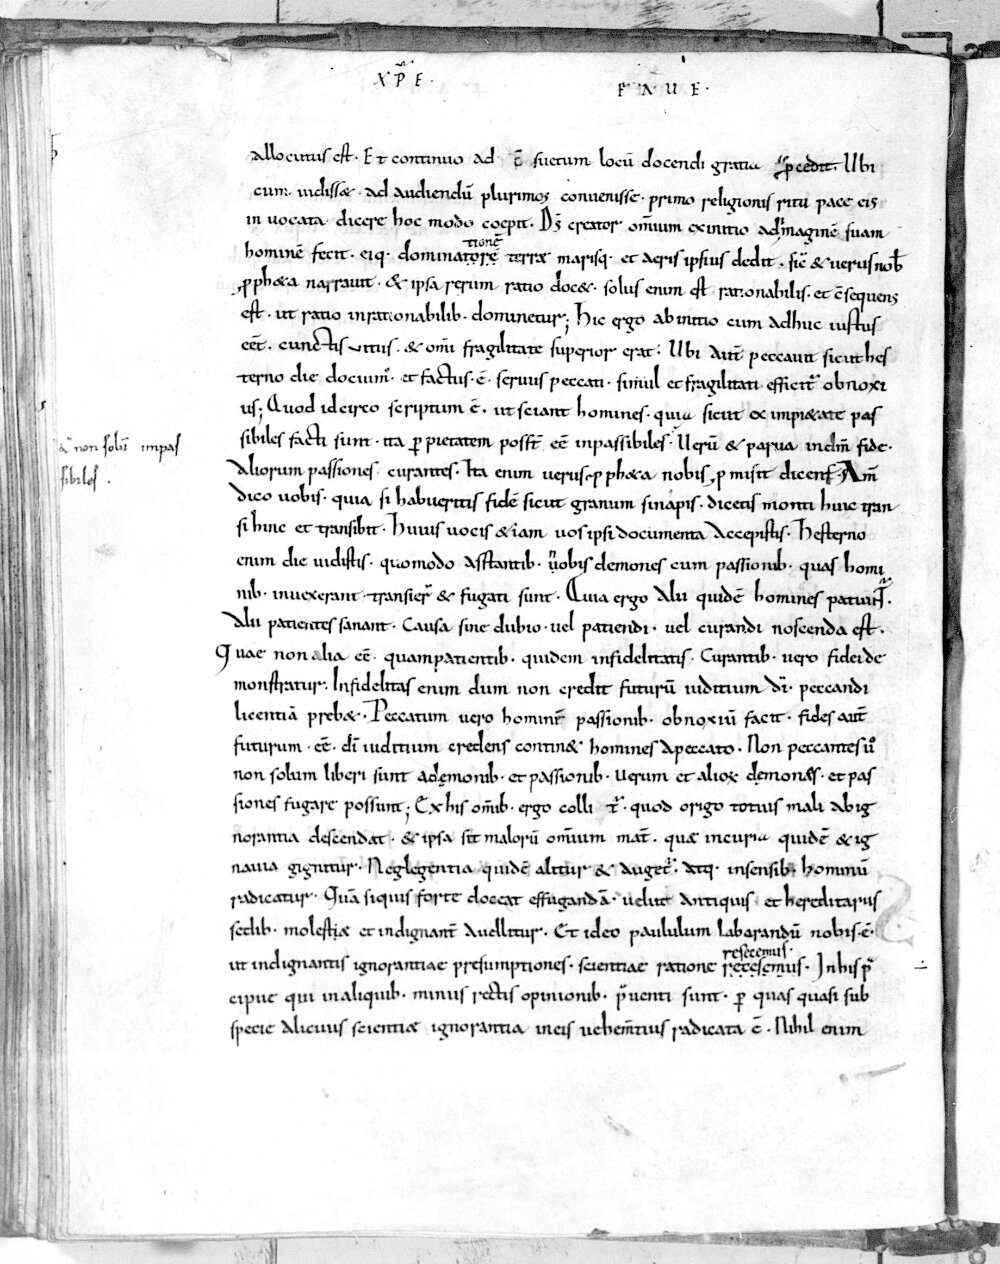 XP̄E · FAVE ·
allocutus est · Et continuo ad c̄suetum locū docendi gratia p̄cedit · Ubi
cum vidissæ · ad audiendū plurimos convenisse · primo religionis ritu pace eis
in vocata dicere hoc modo coepit · D̄s creator om̄ium exinitio ad imaginē suam
tionē
hominē fecit · eiq · dominatorē terræ marisq · et aeris ipsius dedit · sic̄ & verus nob̄
pphæa narravit · & ipsa rerum ratio docæ · solus enim est rationabilis · et c̄sequens
est · ut ratio inrationabilib · dominetur ; hic ergo ab initio cum adhuc iustus
eēt · cunctis vitiis · & om̄i fragilitate superior erat · Ubi aut̄ peccavit sicut hes
terno die docuim̓ · et factus · ē · servus peccati · simul et fragilitati efficit̓ obnoxi
us ; Quod idcirco scriptum ē · ut sciant homines · quia sicut ex impiætate pas
sibiles facti sunt · ita p̱ pietatem posst̄ eē inpassibiles · Verū & parva in dm̄ fide ·
a᷑ non solū impas
sibiles ·
aliorum passiones curantes · Ita enim verus pphæa nobis p misit dicens · Am̄
dico vobis · quia si habueritis fidē sicut granum sinapis · dicetis monti huic tran
si hinc et transibit · Huius vocis & iam vos ipsi documenta accepistis · Hesterno
enim die vidistis · quomodo asstantib · vobis demones cum passionib · quas homi
nib · invexerant transier̓ & fugati sunt · Quia ergo alii quidē homines patiunt̓ ·
alii patientes sanant · causa sine dubio · vel patiendi · vel curandi noscenda est ·
Quae non alia eē · quam patientib · quidem infidelitatis · Curantib · vero fidei de
monstratur · Infidelitas enim dum non credit futurū iuditium dī · peccandi
licentiā prebæ · Peccatum vero homines passionib · obnoxiū facit · fides aut̄
futurum · eē · dī iuditium credens continæ homines a peccato · Non peccantes v̊
non solum liberi sunt a dęmonib · et passionib · verum et alioꝝ dęmones · et pas
siones fugare possunt ; Ex his om̄ib · ergo colligit̓ · quod origo totius mali ab ig
norantia descendat · & ipsa sit malorū om̄ium mat̄ · quæ incuria quidē & ig
navia gignitur · Neglegentia quidē alitur & auget̓ · atq · in sensib · hominū
radicatur · Quā siquis forte doceat effugandā · velut antiquis et hereditariis
sedib · molestiæ et indignant̄ avellitur · Et ideo paululum laborandū nobis · ē ·
resecemus ·
ut indignantis ignorantiae presumptiones · scientiae ratione recesemus · In his p̄
cipue qui in aliquib · minus rectis opinionib · p̄venti sunt · p̱ quas quasi sub
specie alicuius scientiæ ignorantia in eis vehem̄tius radicata ē · Nihil enim